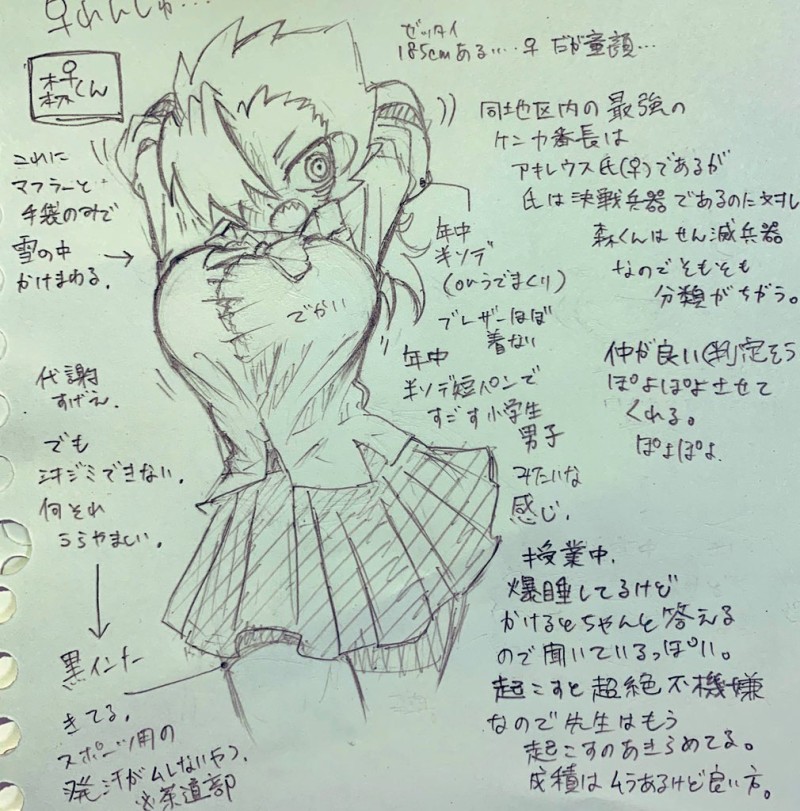 ♀れんしゅ…
森♀くん
ゼッタイ
185cmある…♀ だが童顔…
同地区内の最強の
ケンカ番長は
アキレウス氏(♀)であるが
氏は決戦兵器であるのに対し
森くんはせん滅兵器
なのでそもそも
分類がちがう。
これに
マフラーと
手袋のみで
雪の中
かけまわる。
でかい
年中
半ソデ
(orうでまくり)
ブレザーほぼ
着ない
年中
半ソデ短パンで
すごす小学生
男子
みたいな
感じ.
仲が良い(判定そう
ぽよぽよさせて
くれる。
ぽよぽよ
代謝
すげえ.
でも
汗ジミできない.
何それ
うらやましい.
黒インナー
きてる.
スポーツ用の
発汗がムレないやつ.
※茶道部
授業中.
爆睡してるけど
かけるとちゃんと答える
ので聞いているっぽい。
起こすと超絶不機嫌
なので先生はもう
起こすのあきらめてる。
成積はムラあるけど良い方。